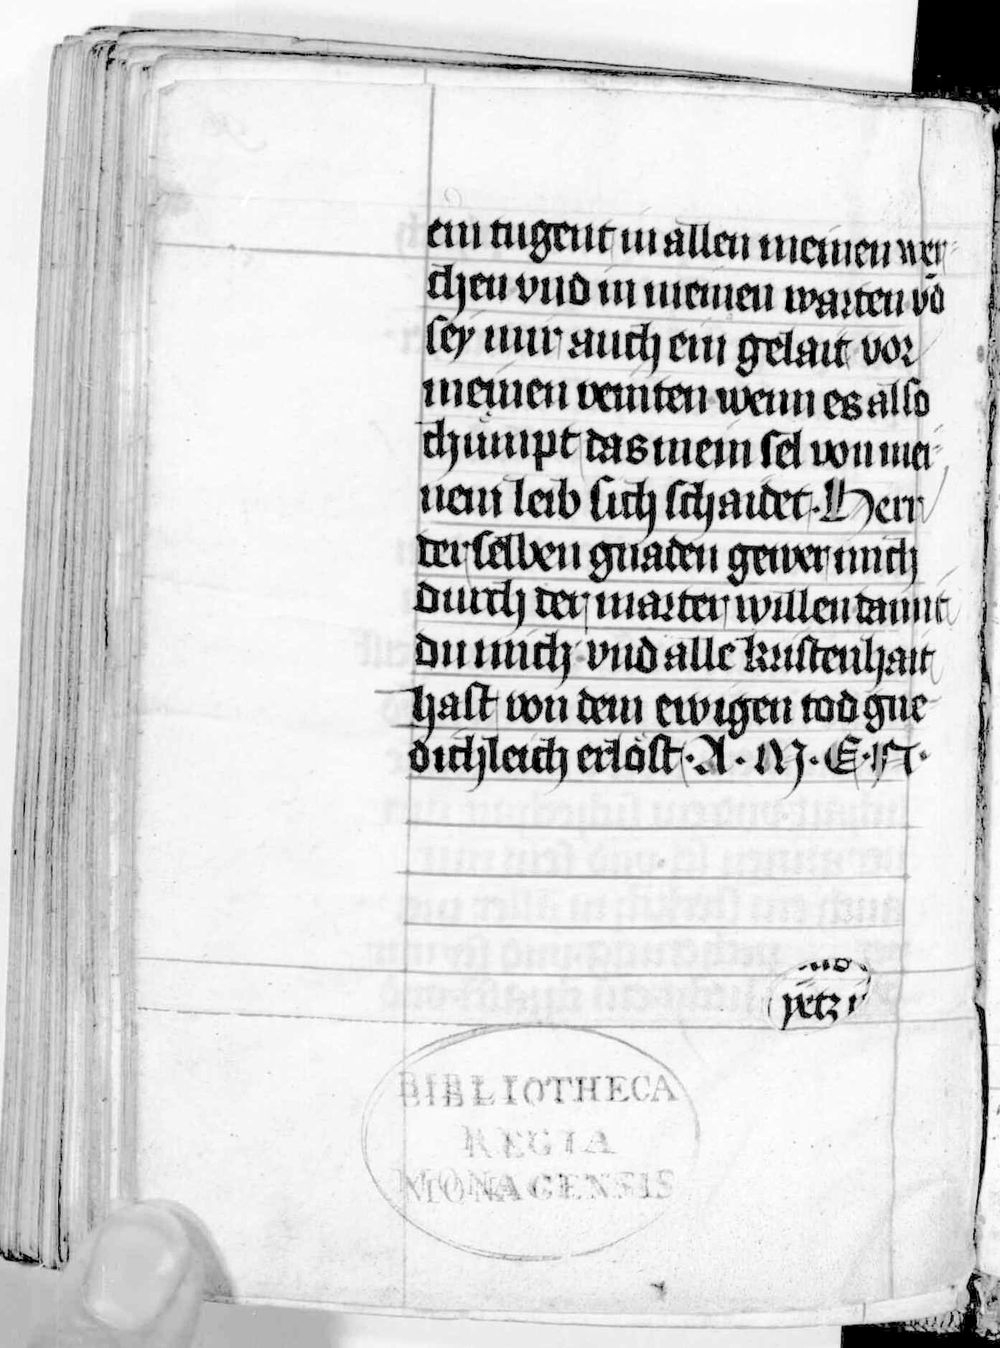 ein tugent in allen meinen wer-
chen vnd in meinen warten vn̄d
sey mir auch ein gelait vor
meinen veinten wenn es also
chümpt das mein sel von mei-
nem leib sich schaidet. Herr
der selben gnaden gewer mich
durch der marter willen damit
du mich. vnd alle kristenhait
hast von dem ewigen tod gne-
dichleich erlöst. A. M. E. N.
yetz
BIBLIOTHECA
REGIA
MONACENSIS